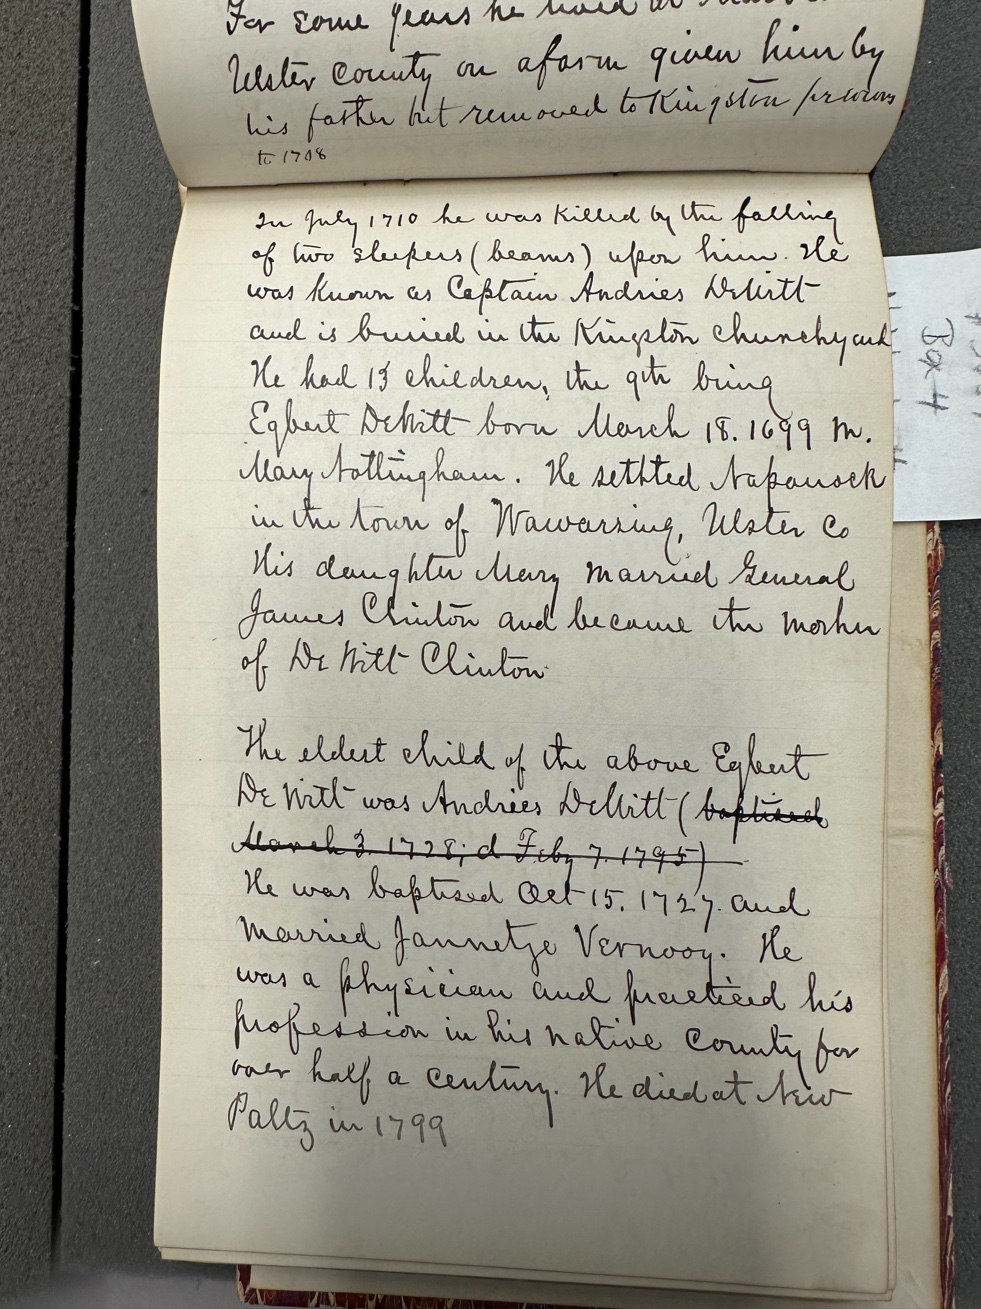 For some years he lived at
Ulster County on a farm given him by
his father but removed to Kingston previous
to 1708
In July 1710 he was killed by the falling
of two sleepers (beams) upon him. He
was known as Captain Andries DeWitt
and is buried in the Kingston churchyard
He had 13 children, the 9th being
Egbert DeWitt born March 18. 1699 m.
Mary Nottingham. He settled Napanock
in the town of Wawarsing, Ulster Co
His daughter Mary married General
James Clinton and became the mother
of DeWitt Clinton
The eldest child of the above Egbert
DeWitt was Andries DeWitt (baptised
March 3. 1728; d Feby 7. 1795)
He was baptised Oct 15. 1727. and
married Jannetje Vernooy. He
was a physician and practiced his
profession in his native County for
over half a century. He died at New
Paltz in 1799
Box 4